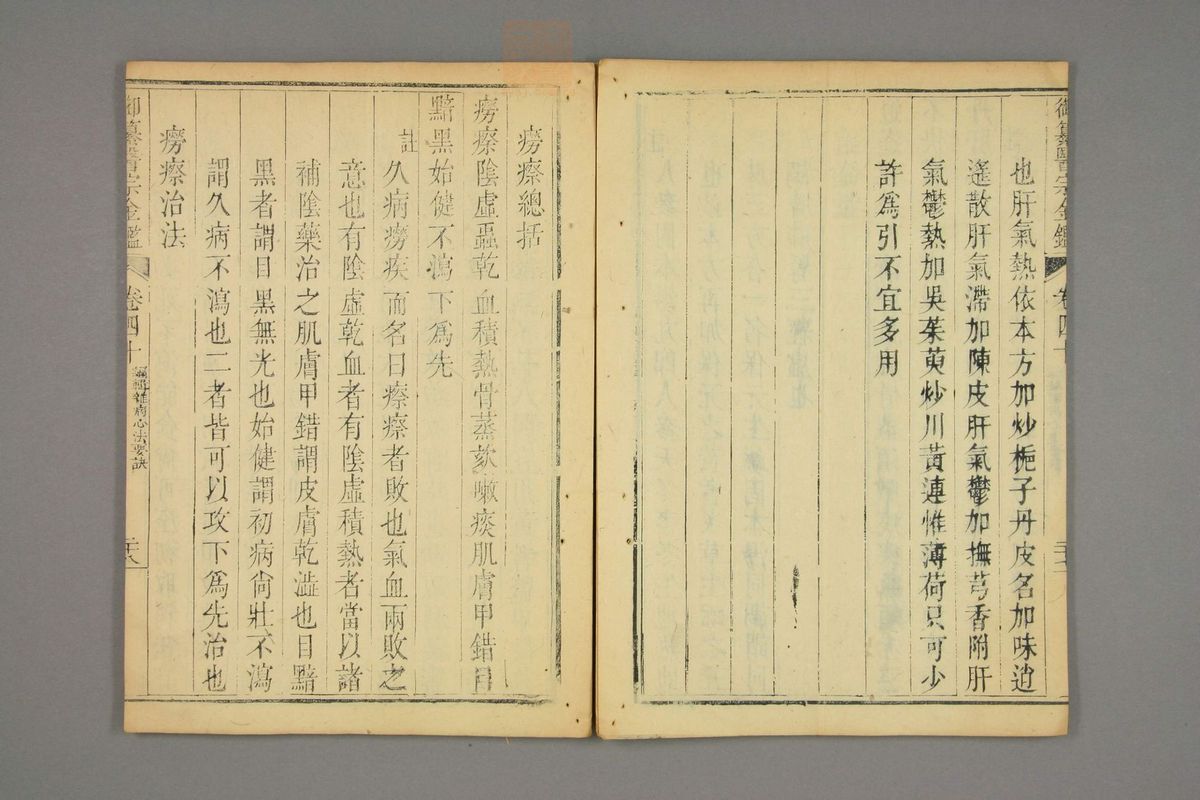 御纂醫宗金鑑
卷四十
也肝氣熱依本方加炒梔子丹皮名加味逍
遙散肝氣滯加陳皮肝氣鬱加撫芎香附肝
氣鬱熱加吳茱萸炒川黃連惟薄荷只可少
許為引不宜多用
癆瘵總括
癆瘵陰虛蟲乾血積熱骨蒸欬嗽痰肌膚甲錯目
黯黑始健不瀉下為先
註
久病癆疾而名曰瘵瘵者敗也氣血兩敗之
意也有陰虛乾血者有陰虛積熱者當以諸
補陰藥治之肌膚甲錯謂皮膚乾澁也目黯
黑者謂目黑無光也始健謂初病尙壯不瀉
謂久病不瀉也二者皆可以攻下為先治也
癆瘵治法
御纂醫宗金鑑
卷四十
編輯雜病心法要訣
二十八